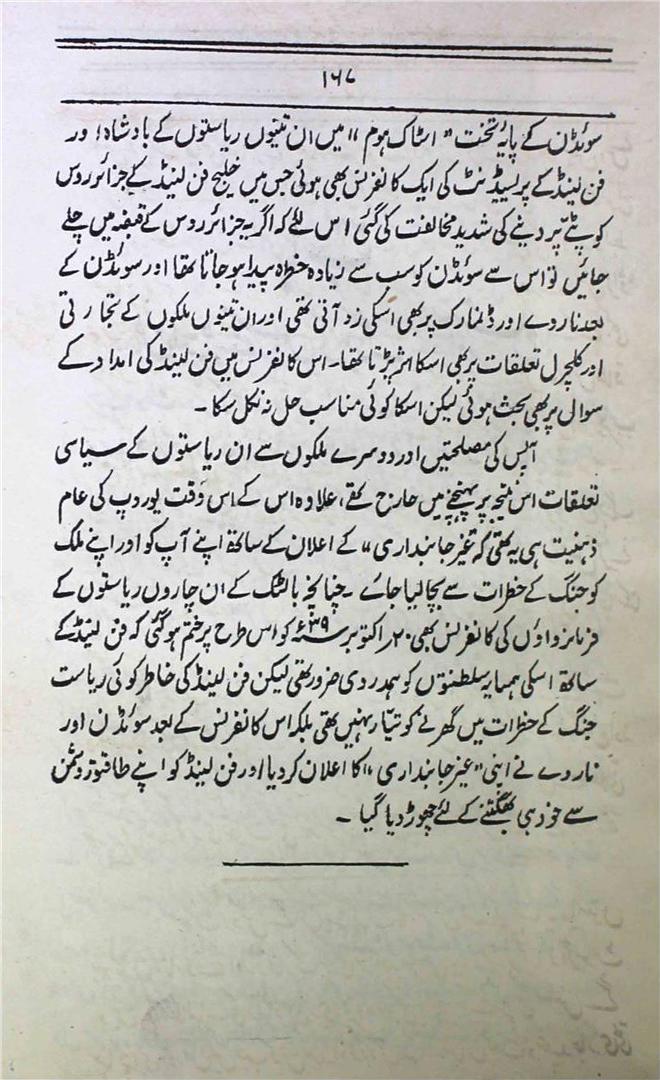 ۱۶۷
سوئڈن کے پایۂ تخت "اسٹاک ہوم" میں ان تینوں ریاستوں کے بادشاہ اور
فن لینڈ کے پریسیڈنٹ کی ایک کانفرنس بھی ہوئی جس میں خلیج فن لینڈ کے جزائر روس
کو پٹے پر دینے کی شدید مخالفت کی گئی اس لئے کہ اگر یہ جزائر روس کے قبضہ میں چلے
جائیں تو اس سے سوئڈن کو سب سے زیادہ خطرہ پیدا ہو جاتا تھا اور سوئڈن کے
بعد ناروے اور ڈنمارک پر بھی اسکی زد آتی تھی اور ان تینوں ملکوں کے تجارتی
اور کلچرل تعلقات پر بھی اسکا اثر پڑتا تھا۔ اس کانفرنس میں فن لینڈ کی امداد کے
سوال پر بھی بحث ہوئی لیکن اسکا کوئی مناسب حل نہ نکل سکا۔
آپس کی مصلحتیں اور دوسرے ملکوں سے ان ریاستوں کے سیاسی
تعلقات اس نتیجہ پر پہنچنے میں حارج تھے، علاوہ اس کے اس وقت یورپ کی عام
ذہنیت ہی یہ تھی کہ "غیر جانبداری" کے اعلان کے ساتھ اپنے آپ کو اور اپنے ملک
کو جنگ کے خطرات سے بچا لیا جائے۔ چنانچہ بالٹک کے ان چاروں ریاستوں کے
فرمانرواؤں کی کانفرنس بھی ۲۰ اکتوبر ۳۹ء کو اس طرح پر ختم ہو گئی کہ فن لینڈ کے
ساتھ اسکی ہمسایہ سلطنتوں کو ہمدردی ضرور تھی لیکن فن لینڈ کی خاطر کوئی ریاست
جنگ کے خطرات میں گھرنے کو تیّار نہیں تھی بلکہ اس کانفرنس کے بعد سوئڈن اور
ناروے نے اپنی "غیر جانبداری" کا اعلان کر دیا اور فن لینڈ کو اپنے طاقتور دشمن
سے خود ہی بھگتنے کے لئے چھوڑ دیا گیا۔